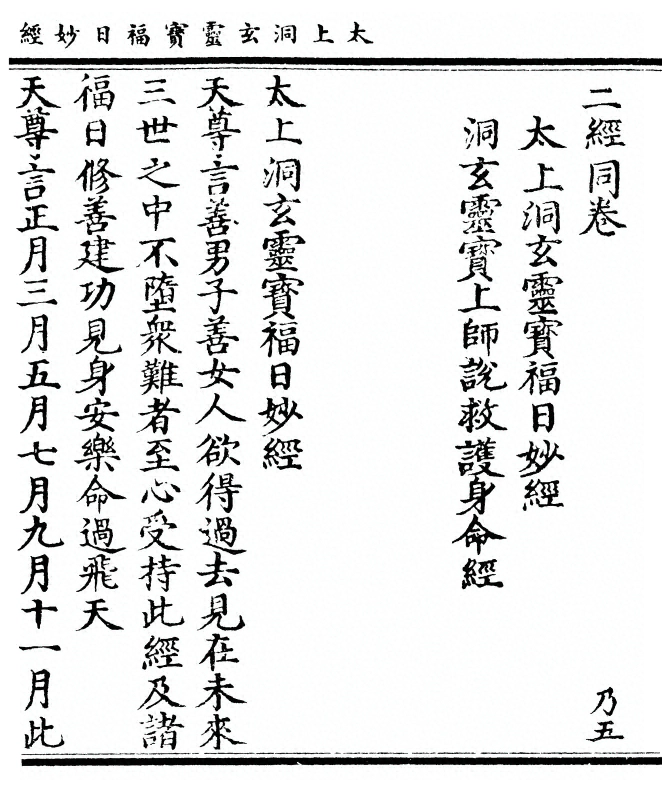 太上洞玄靈寶福日妙經
二經同卷
乃五
太上洞玄靈寶福日妙經
洞玄靈寶上師說救護身命經
太上洞玄靈寶福日妙經
天尊言善男子善女人欲得過去見在未來
三世之中不墮衆難者至心受持此經及諸
福日修善建功見身安樂命過飛天
天尊言正月三月五月七月九月十一月此